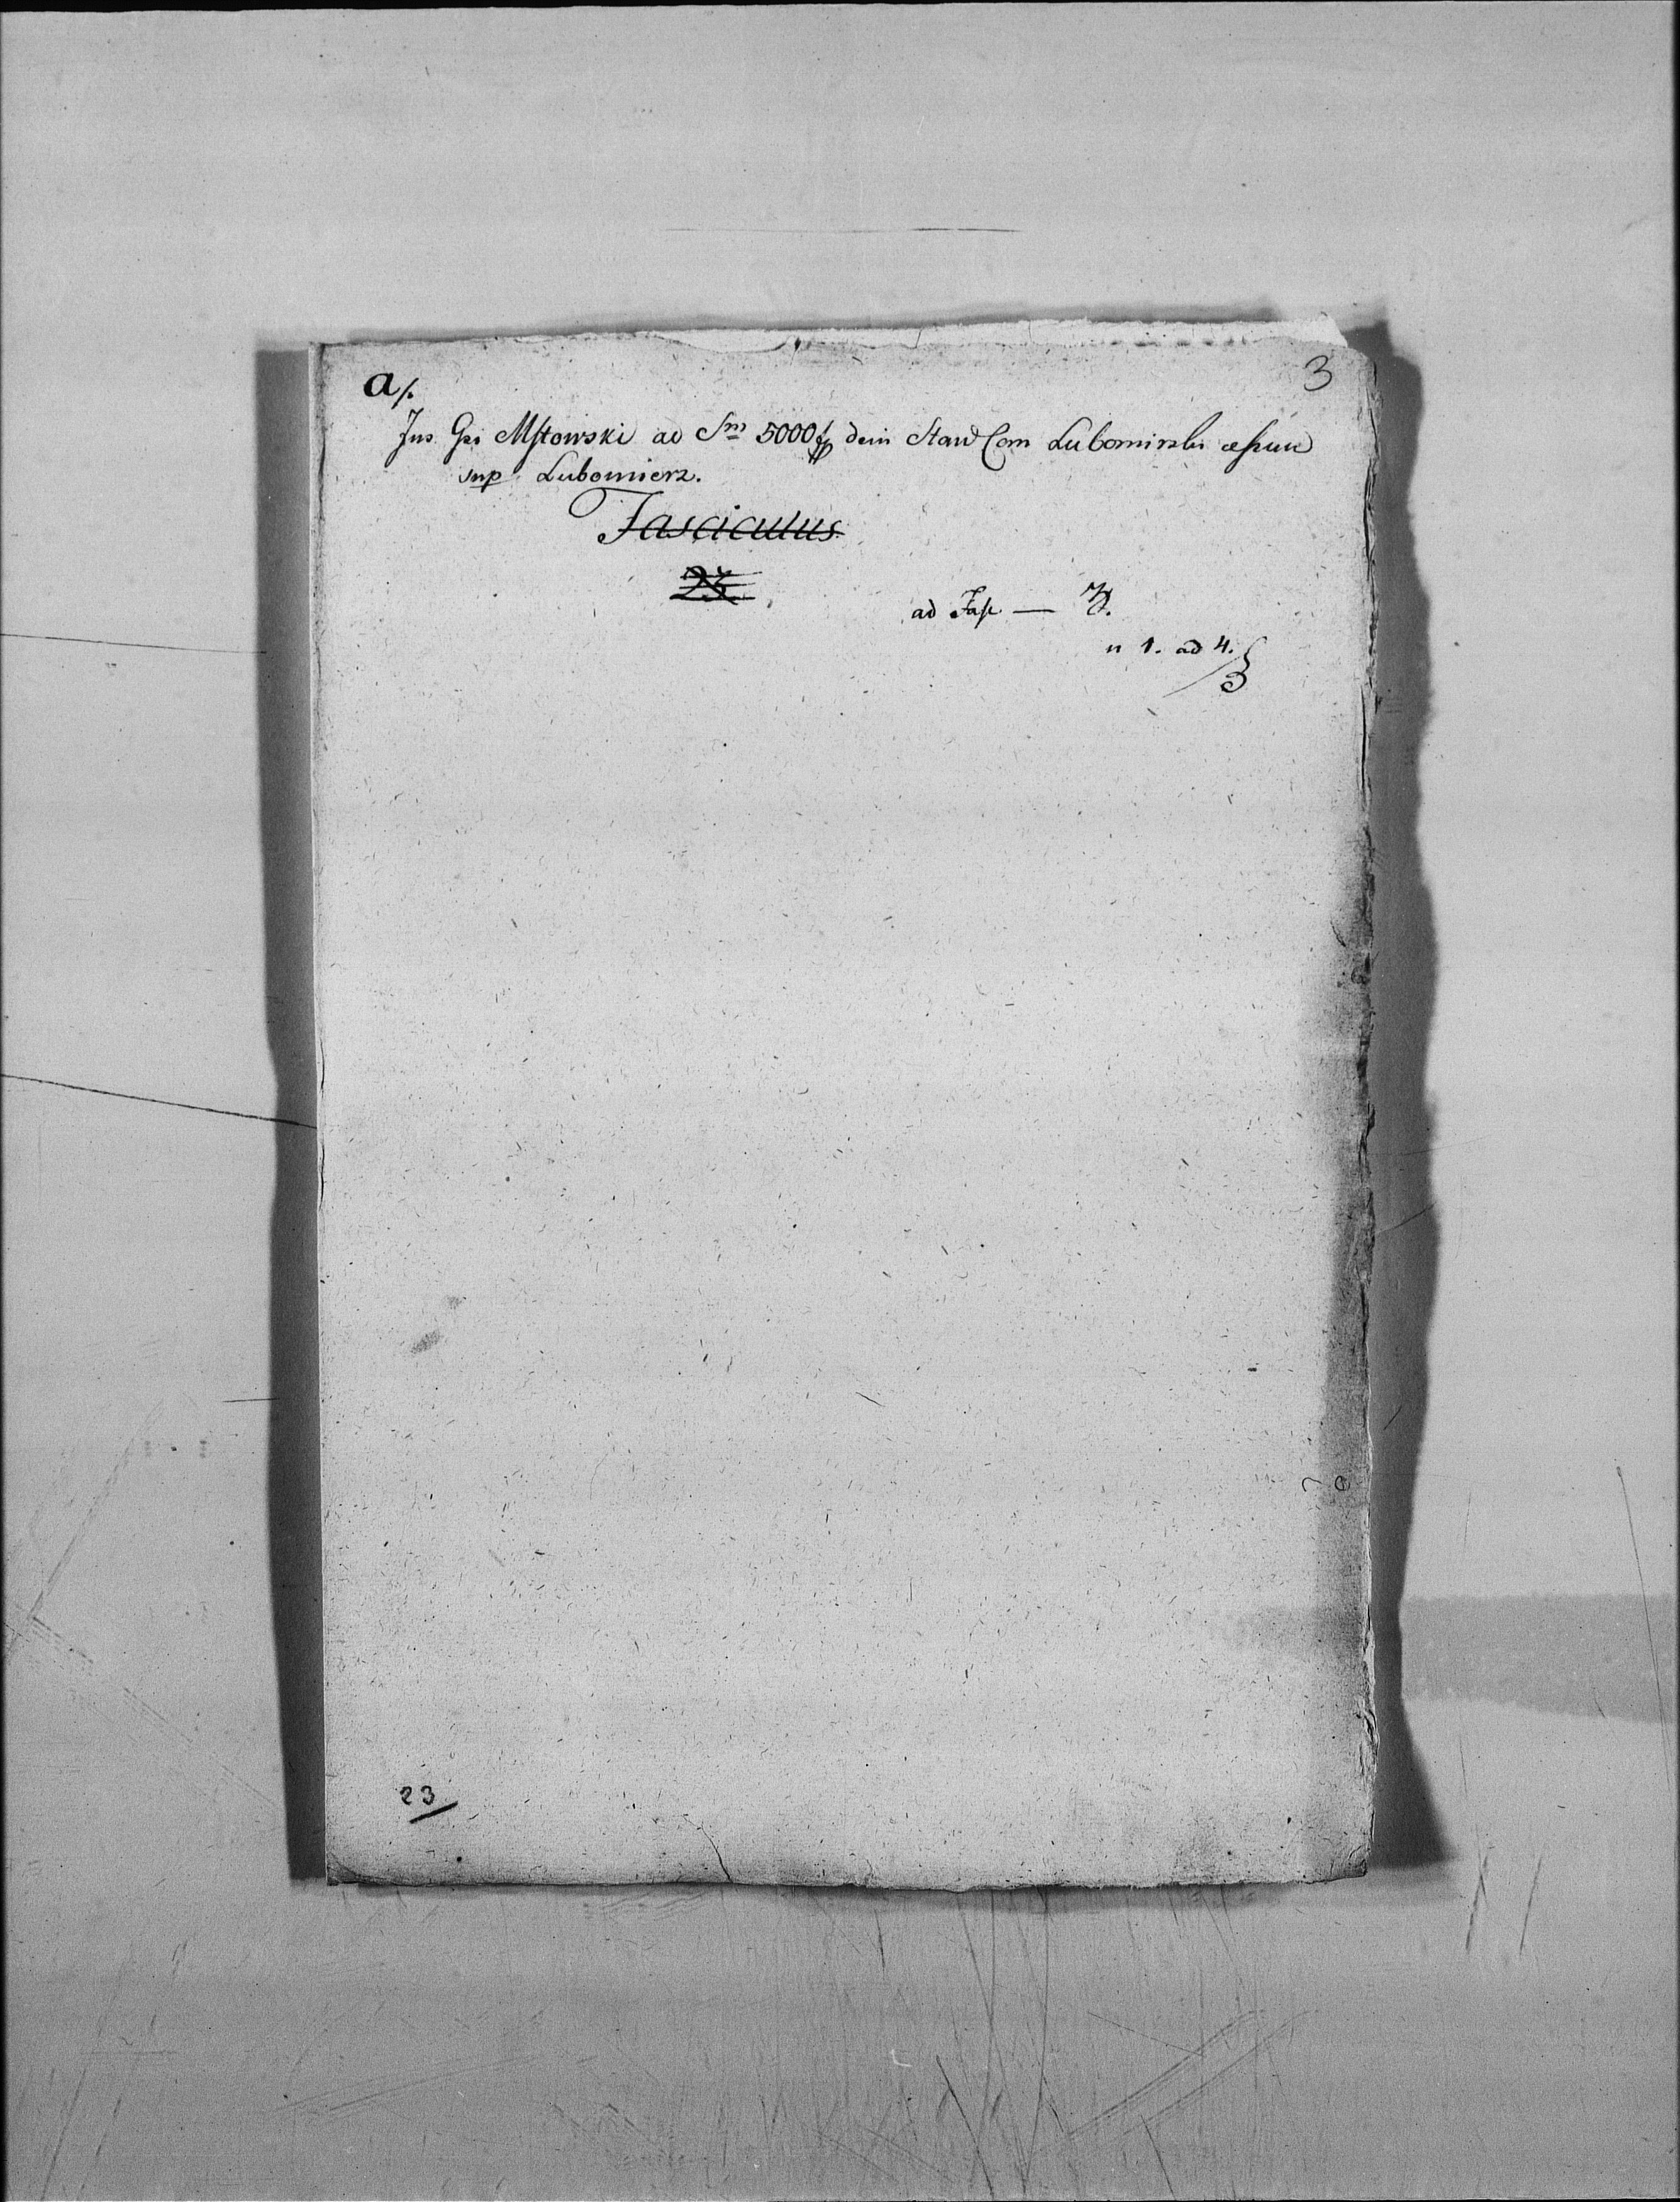 a/.
3
Jus Gsi Mstowski ad Sm 5000 dein Staw Com Lubomirski
sup Lubomierz.
Fasciculus
23
ad Fasc —
n 1. ad 4.
23